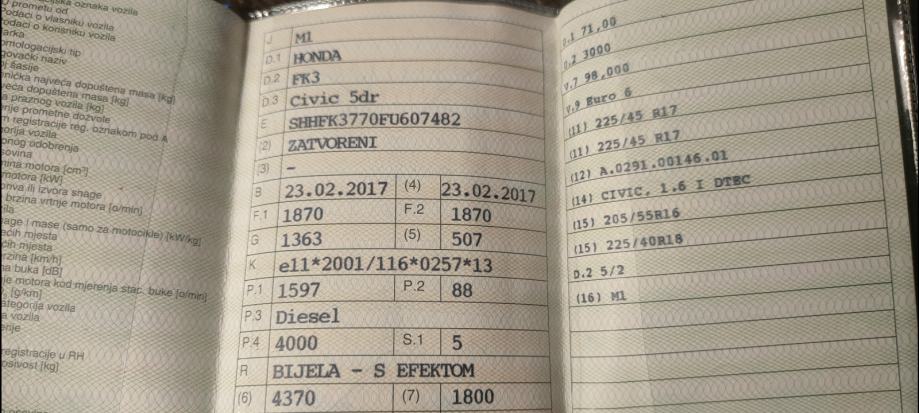 prometu od
Podaci o vlasniku vozila
Podaci o korisniku vozila
arka
omologacijski tip
govački naziv
oj šasije
nička najveća dopuštena masa [kg]
veća dopuštena masa [kg]
a praznog vozila [kg]
nje prometne dozvole
m registracije reg. oznakom pod A
gorija vozila
nog odobrenja
sovina
mina motora [cm³]
motora [kW]
oriva ili izvora snage
brzina vrtnje motora [o/min]
zila
nage i mase (samo za motocikle) [kW/kg]
ećih mjesta
ćih mjesta
rzina [km/h]
na buka [dB]
je motora kod mjerenja stac. buke [o/min]
[g/km]
ategorija vozila
a vozila
enje
registracije u RH
osivost [kg]
J M1
D.1 HONDA
D.2 FK3
D.3 Civic 5dr
E SHHFK3770FU607482
(2) ZATVORENI
(3) –
B 23.02.2017 (4) 23.02.2017
F.1 1870 F.2 1870
G 1363 (5) 507
K e11*2001/116*0257*13
P.1 1597 P.2 88
P.3 Diesel
P.4 4000 S.1 5
R BIJELA - S EFEKTOM
(6) 4370 (7) 1800
U.1 71,00
U.2 3000
V.7 98,000
V.9 Euro 6
(11) 225/45 R17
(11) 225/45 R17
(12) A.0291.00146.01
(14) CIVIC, 1.6 I DTEC
(15) 205/55R16
(15) 225/40R18
D.2 5/2
(16) M1